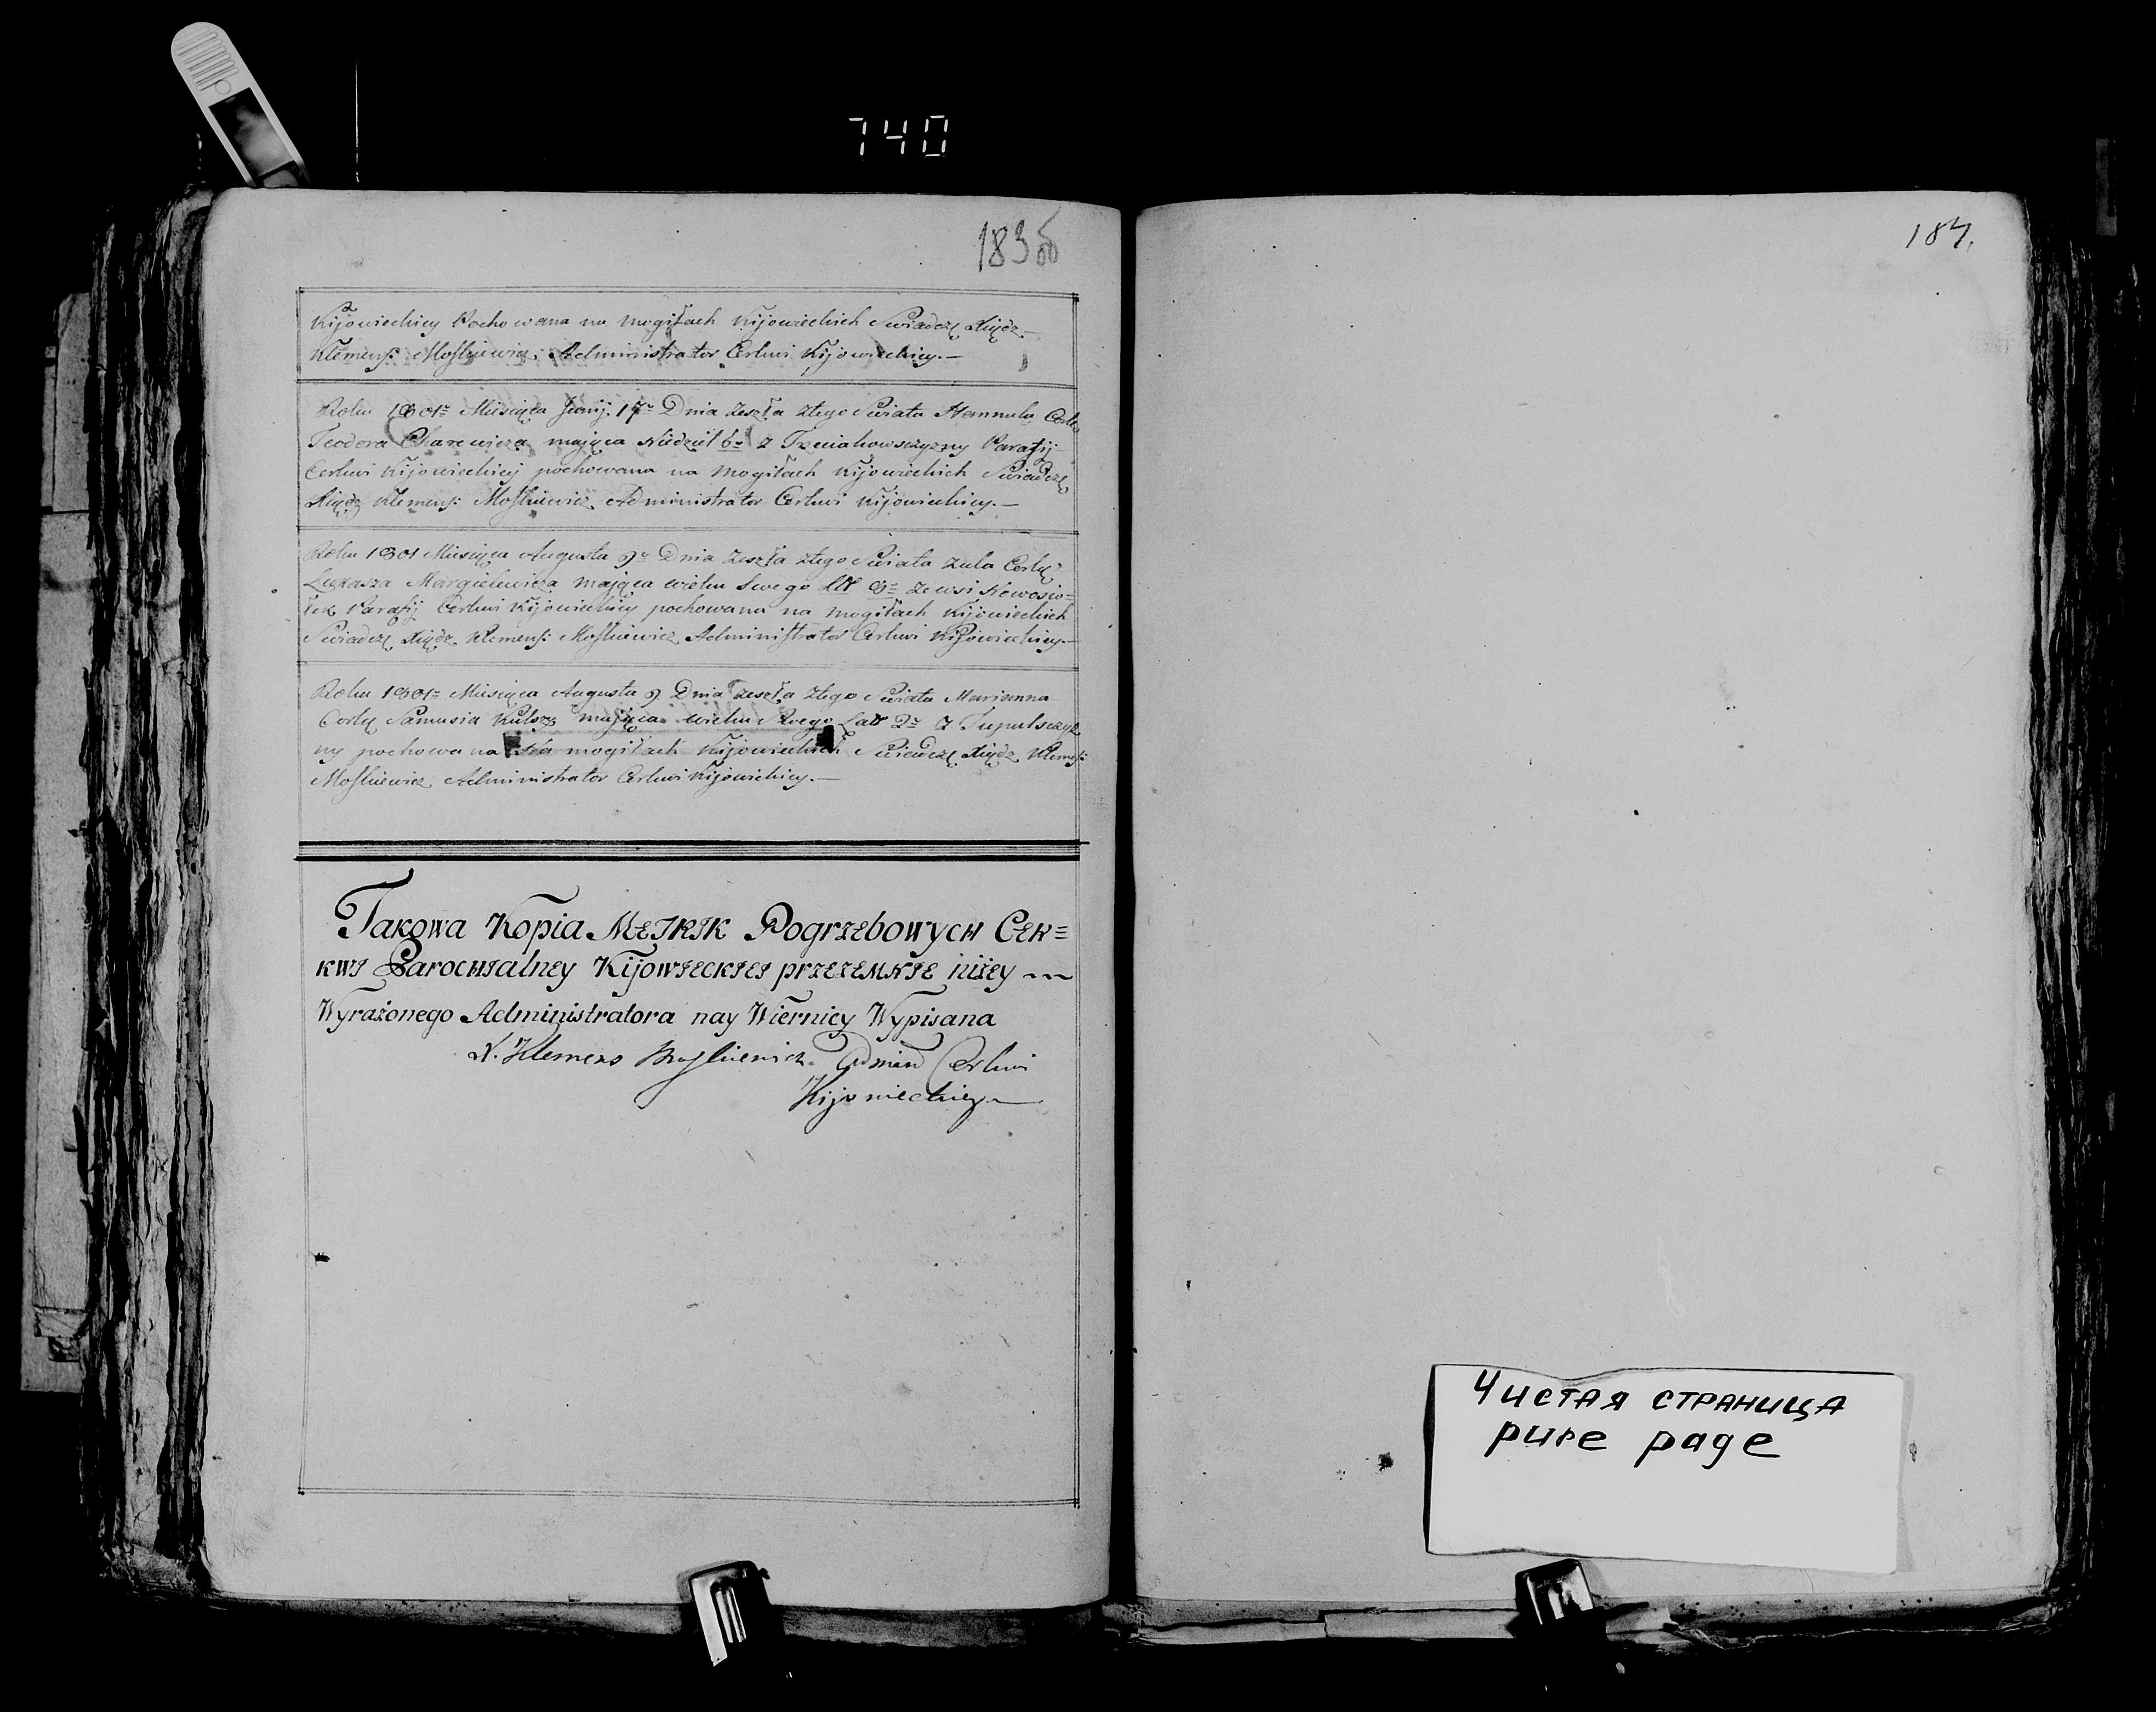 740
183 об
Kijowieckiey Pochowana na mogiłach Kijowieckich Swiadczę Xiądz
Klemens: Moskiewicz Administrator Cerkwi Kijowieckiey.—
Roku 1801= Miesiąca Junij. 17= Dnia zeszła ztego Swiata Hannula Corka
Teodora Charewicza mająca Niedziel 6= z Parafij
Cerkwi Kijowieckiej pochowana na mogiłach Kijowieckich Swiadczę
Xiądz Klemens: Moskiewicz Administrator Cerkwi Kijowieckiey.—
Roku 1801 Miesiąca Augusta 9= Dnia zeszła ztego Swiata Zula Corka
Łukasza Margielewicza mająca wieku Swego Lat 8= ze wsi Nowosio=
łek Parafij Cerkwi Kijowieckiey pochowana na mogiłach Kijowieckich
Swiadczę Xiądz Klemens: Moskiewicz Administrator Cerkwi Kijowieckiey.—
Roku 1801= Miesiąca Augusta 9 Dnia zeszła ztego Swiata Marianna
Corka Samusia mająca wieku Swego Lat 2= z
ny pochowana na mogiłach Kijowieckich Swiadczę Xiądz Klemens:
Moskiewicz Administrator Cerkwi Kijowieckiey.—
Takowa Kopia Metryk Pogrzebowych Cer=
kwi Parochialney Kijowieckiei przezemnie niżey
Wyrażonego Administratora nay Wierniey Wypisana
X. Klemens Moskiewicz Admini Cerkwi
Kijowieckiey—
184.
Чистая страница
pure page